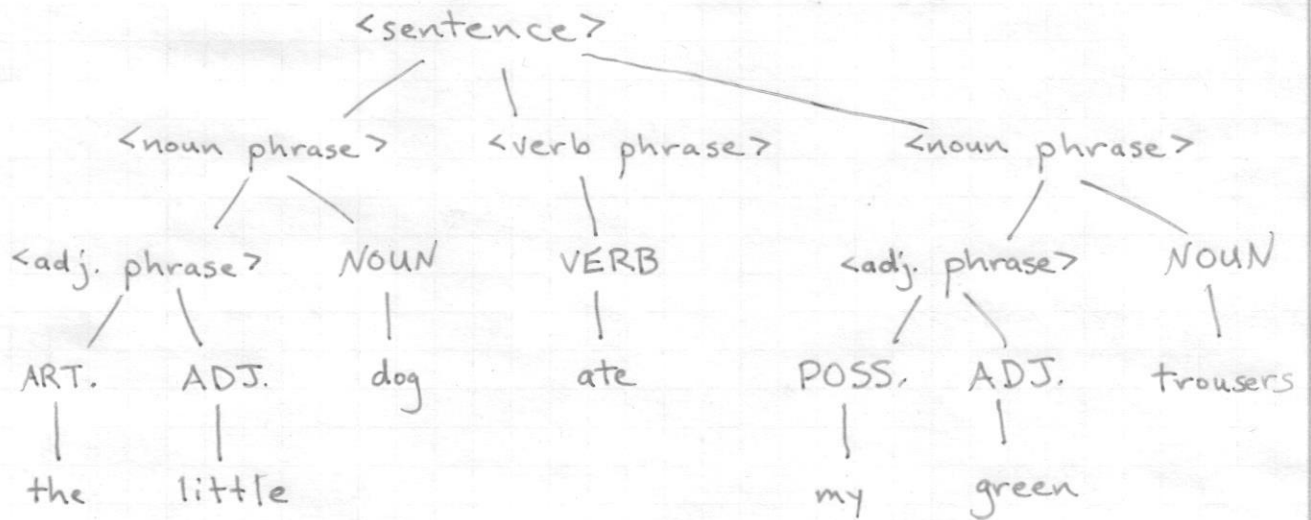 <sentence>
<noun phrase> <verb phrase> <noun phrase>
<adj. phrase> NOUN VERB <adj. phrase> NOUN
ART. ADJ. dog ate POSS. ADJ. trousers
the little my green